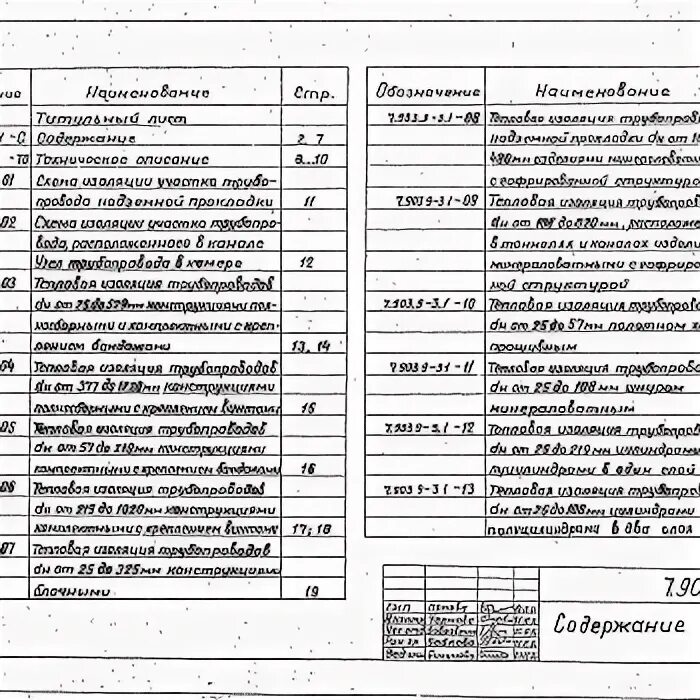 Наименование
Стр.
Титульный лист
1-С Содержание 2..7
-ТО Техническое описание 8..10
01 Схема изоляции участка трубо-
провода надземной прокладки 11
02 Схема изоляции участка трубопро-
вода, расположенного в канале
Узел трубопровода в камере 12
03 Тепловая изоляция трубопроводов
dн от 25 до 529мм конструкциями пол-
носборными и комплектными с креп-
лением бандажами 13, 14
04 Тепловая изоляция трубопроводов
dн от 377 до 1020мм конструкциями
полносборными с креплением винтами 15
05 Тепловая изоляция трубопроводов
dн от 57 до 219мм конструкциями
комплектными с креплением бандажами 16
06 Тепловая изоляция трубопроводов
dн от 219 до 1020мм конструкциями
комплектными с креплением винтами 17; 18
07 Тепловая изоляция трубопроводов
dн от 25 до 325мм конструкциями
блочными 19
Обозначение
Наименование
7.903.9-3.1-08 Тепловая изоляция трубопров
надземной прокладки dн от
с гофрированной структуро
7.903.9-3.1-09 Тепловая изоляция трубопров
dн от 108 до 820мм, располож
в тоннелях и каналах издели
минераловатными с гофриро
ной структурой
7.903.9-3.1-10 Тепловая изоляция трубопров
dн от 25 до 57мм полотном х
прошивным
7.903.9-3.1-11 Тепловая изоляция трубопров
dн от 25 до 108мм шнуром
минераловатным
7.903.9-3.1-12 Тепловая изоляция трубопров
dн от 25 до 219мм цилиндрам
полуцилиндрами в один слой
7.903.9-3.1-13 Тепловая изоляция трубопров
цилиндрами
полуцилиндрами в два слоя
7.90
Содержание